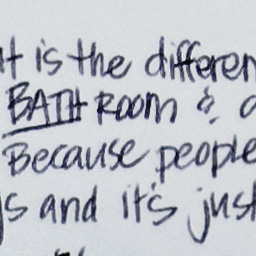 t is the differen
BATH ROOM &
Because people
s and it's just